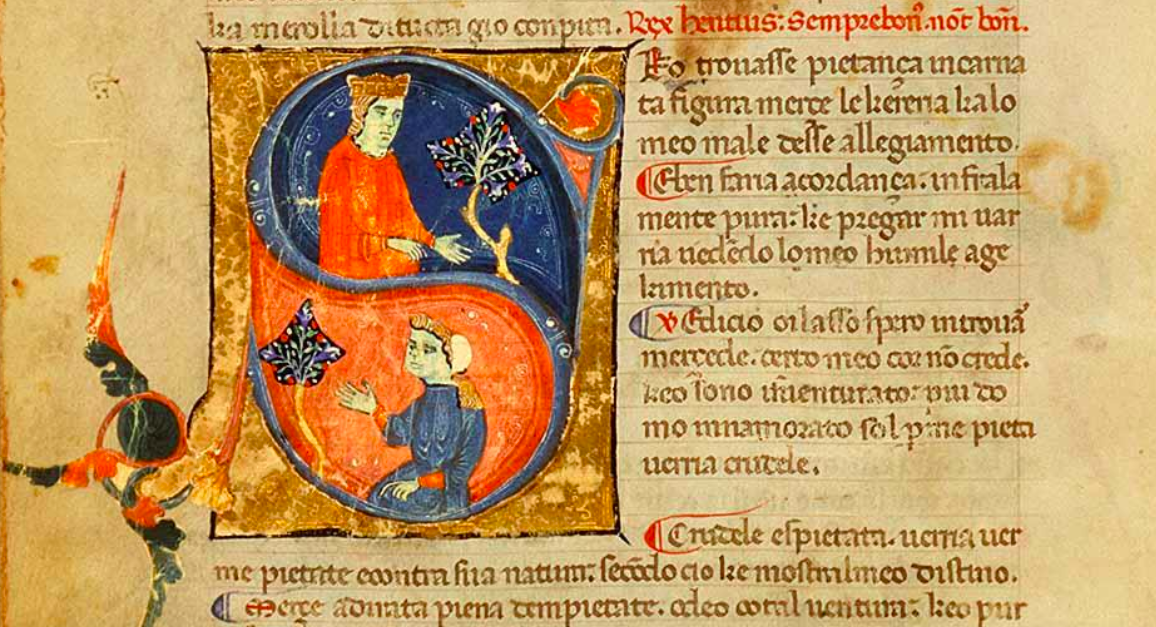 ka merolla di tucta gio conpita. Rex hentius: Semprebon̄. not̄ bon̄.
S
Eo trouasse pietança incarna
ta figura merçe le kereria kalo
meo male desse allegiamento.
Eben faria acordança. infrala
mente pura: ke pregar mi uar
ria uedēdo lomeo humile age
kimento.
Edicio oilasso spero introuar̄
merçede. certo meo cor nō crede.
keo sono isuenturato: piu do
mo innamorato sol p̱ me pieta
uerria crudele.
Crudele espietata. uerria uer
me pietate econtra sua natura: secōdo cio ke mostralmeo distino.
Merçe adirata piena dempietate. odeo cotal uentura: keo pur